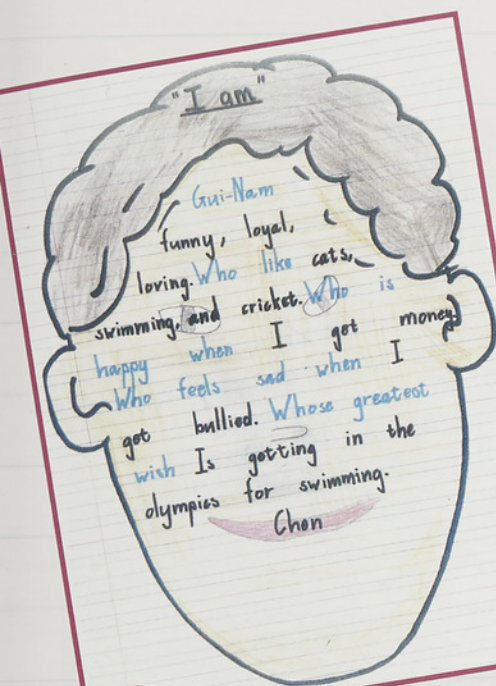 "I am"
Gui-Nam
funny, loyal,
loving. Who like cats,
swimming, and cricket. Who is
happy when I get money
Who feels sad when I
got bullied. Whose greatest
wish Is getting in the
olympics for swimming.
Chen